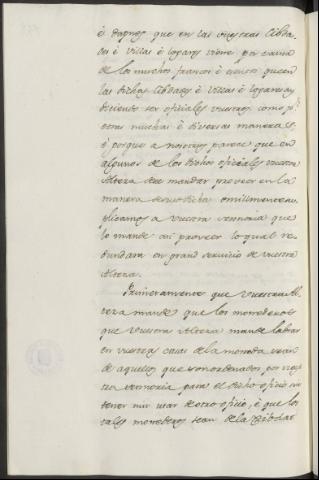 è dapnos que en las vuestras Cibda-
des è villas è logares viene por causa
de los muchos francos è esentos que en
las dichas Cibdades è Villas è logares ay
diciendo ser oficiales vuestros como por
otras muchas è diversas maneras,
è porque a nosotros parece que en
algunos de los dichos oficiales vuestra
Alteza deve mandar proveer en la
manera de suso dicha omilmente su-
plicamos a vuestra señoria que
lo mande asi proveer lo qual re-
dundara en grand servicio de vuestra
Alteza.
Primeramente que vuestra Al-
teza mande que los monederos
que vuestra Alteza manda labrar
en vuestras casas de la moneda sean
de aquellos que son ordenados, por vues-
tra señoria para el dicho oficio, sin
tener nin usar de otro oficio, è que los
tales monederos sean de la Cibdad